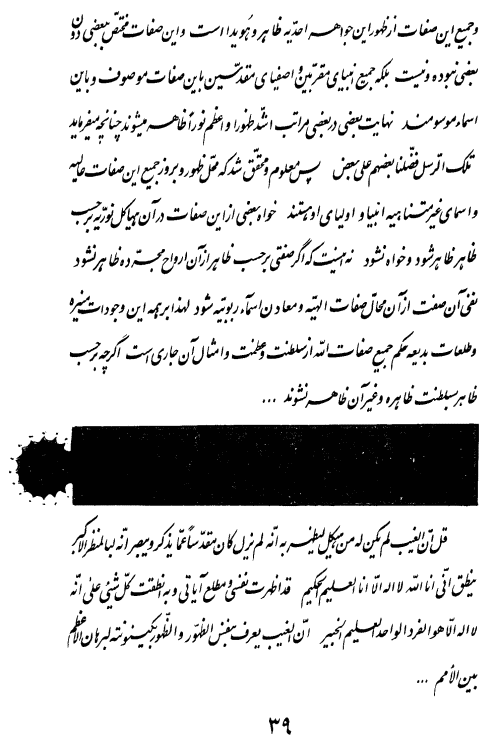 و جمیع این صفات از ظهور این جواهر احدیّه ظاهر و هویدا است و این صفات مختصّ ببعضی دون
بعضی نبوده و نیست بلکه جمیع انبیای مقرّبین و اصفیای مقدّسین باین صفات موصوف و باین
اسماء موسومند نهایت بعضی در بعضی مراتب اشدّ ظهورا و اعظم نورا ظاهر میشوند چنانچه میفرماید
تلک الرّسل فضّلنا بعضهم علی بعض پس معلوم و محقّق شد که محلّ ظهور و بروز جمیع این صفات عالیه
و اسمای غیر متناهیه انبیا و اولیای او هستند خواه بعضی از این صفات در آن هیاکل نوریّه بر حسب
ظاهر ظاهر شود و خواه نشود نه اینست که اگر صفتی بر حسب ظاهر از آن ارواح مجرّده ظاهر نشود
نفی آن صفت از آن محالّ صفات الهیّه و معادن اسماء ربوبیّه شود لهذا بر همه این وجودات منیره
و طلعات بدیعه حکم جمیع صفات اللّه از سلطنت و عظمت و امثال آن جاری است اگرچه بر حسب
ظاهر بسلطنت ظاهره و غیر آن ظاهر نشوند ...
قل انّ الغیب لم یکن له من هیکل لیظهر به انّه لم یزل کان مقدّسا عمّا یذکر و یبصر انّه لبالمنظر الاکبر
ینطق انّی انا اللّه لا اله الّا انا العلیم الحکیم قد اظهرت نفسی و مطلع آیاتی و به نطقت کلّ شیئ علی انّه
لا اله الّا هو الفرد الواحد العلیم الخبیر انّ الغیب یعرف بنفس الظّهور و الظّهور بکینونته لبرهان الاعظم
بین الأمم ...
٣٩